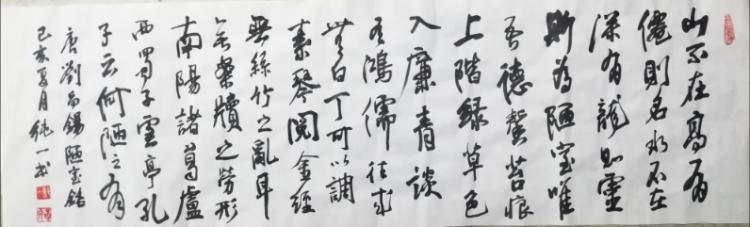 山不在高有
僊則名水不在
深有龍則靈
斯為陋室唯
吾德馨苔痕
上階綠草色
入廉青談
有鴻儒往来
無白丁可以調
素琴閱金經
無絲竹之亂耳
無案牘之勞形
南陽諸葛廬
西蜀子雲亭孔
子云何陋之有
唐劉禹錫陋室銘
己亥夏月純一书